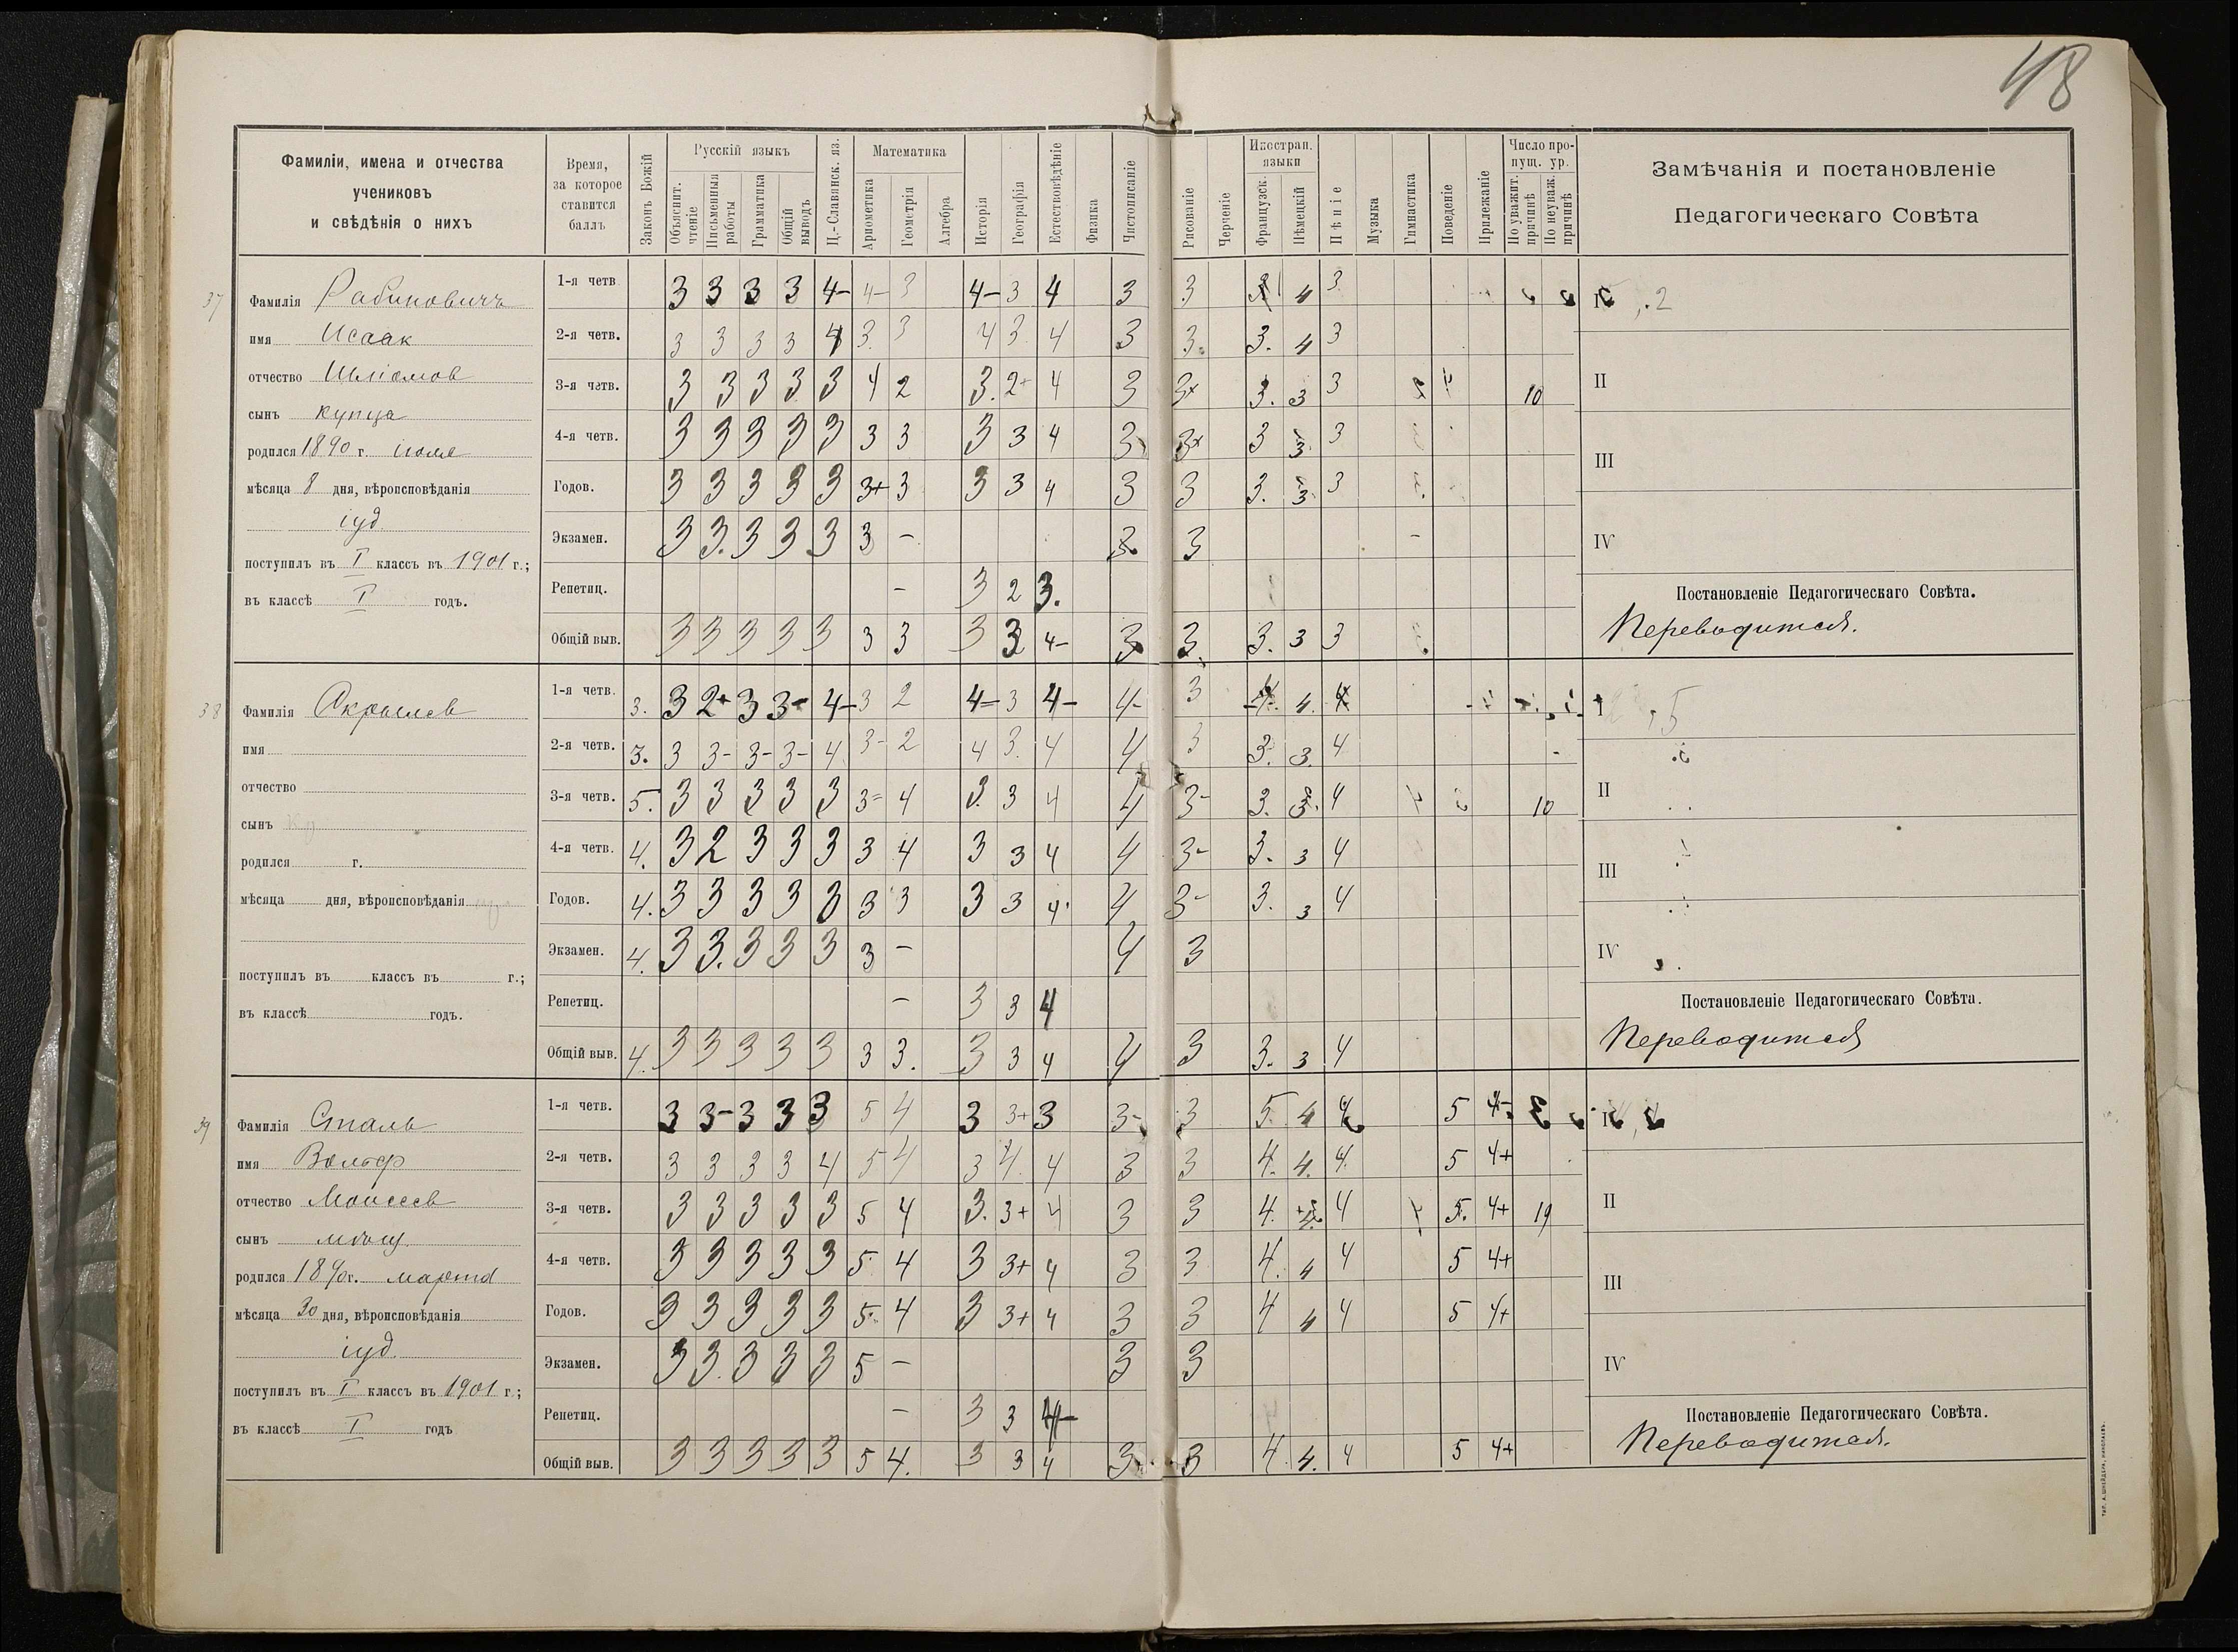 48
Фамиліи, имена и отчества
учениковъ
и свѣдѣнія о нихъ
Время,
за которое
ставится
баллъ
Законъ Божій
Русскій языкъ
Объяснит. чтеніе
Письменныя работы
Грамматика
Общій выводъ
Ц.-Славянск. яз.
Математика
Ариѳметика
Геометрія
Алгебра
Исторія
Географія
Естествовѣдѣніе
Физика
Чистописаніе
Рисованіе
Черченіе
Иностран. языки
Французск.
Нѣмецкій
Пѣніе
Музыка
Гимнастика
Поведеніе
Прилежаніе
Число пропущ. ур.
По уважит. причинѣ
По неуваж. причинѣ
Замѣчанія и постановленіе
Педагогическаго Совѣта
37
Фамилія Рабиновичъ
имя Исаак
отчество Шліомов
сынъ купца
родился 1890 г. іюля
мѣсяца 8 дня, вѣроисповѣданія
іуд.
поступилъ въ I классъ въ 1901 г.;
въ классѣ I годъ.
1-я четв. 3 3 3 3 4- 4- 3 4- 3 4 3 3 4 3
2-я четв. 3 3 3 3 4 3. 3 4 3 4 3 3. 3. 4 3
3-я четв. 3 3 3 3 3 4 2 3. 2+ 4 3 3. 3 3 10
4-я четв. 3 3 3 3 3 3 3 3 3 4 3 3 3 3
Годов. 3 3 3 3 3 3+ 3 3 3 4 3 3 3. 3 3
Экзамен. 3 3. 3 3 3 3 - 3 3 -
Репетиц. - 3 2 3.
Общій выв. 3 3 3 3 3 3 3 3 3 4- 3 3. 3. 3 3
I
II
III
IV
Постановленіе Педагогическаго Совѣта.
Переводится.
38
Фамилія Акрылев
имя
отчество
сынъ
родился г.
мѣсяца дня, вѣроисповѣданія
поступилъ въ классъ въ г.;
въ классѣ годъ.
1-я четв. 3. 3 2+ 3 3- 4- 3 2 4- 3 4- 4- 3 4.
2-я четв. 3. 3 3- 3- 3- 4 3- 2 4 3. 4 4 3 3. 3. 4
3-я четв. 5. 3 3 3 3 3 3= 4 3. 3 4 4 3- 3. 3. 4 10
4-я четв. 4. 3 2 3 3 3 3 4 3 3 4 4 3- 3. 3 4
Годов. 4. 3 3 3 3 3 3 3 3 3 4 4 3- 3. 3 4
Экзамен. 4. 3 3. 3 3 3 3 - 4 3
Репетиц. - 3 3 4
Общій выв. 4. 3 3 3 3 3 3 3. 3 3 4 4 3 3. 3 4
I
II
III
IV
Постановленіе Педагогическаго Совѣта.
Переводится
39
Фамилія Сталь
имя Вольф
отчество Моисеев
сынъ мѣщ.
родился 1890 г. марта
мѣсяца 30 дня, вѣроисповѣданія
іуд.
поступилъ въ I классъ въ 1901 г.;
въ классѣ I годъ
1-я четв. 3 3- 3 3 3 5 4 3 3+ 3 3- 3 5. 4 5
2-я четв. 3 3 3 3 4 5 4 3 4. 4 3 3 4. 4. 4. 5 4+
3-я четв. 3 3 3 3 3 5 4 3. 3+ 4 3 3 4. 4 5. 4+ 19
4-я четв. 3 3 3 3 3 5 4 3 3+ 4 3 3 4. 4 4 5 4+
Годов. 3 3 3 3 3 5. 4 3 3+ 4 3 3 4 4 4 5 4+
Экзамен. 3 3. 3 3 3 5 - 3 3
Репетиц. - 3 3 4-
Общій выв. 3 3 3 3 3 5 4. 3 3 4 3 3 4. 4. 4 5 4+
I
II
III
IV
Постановленіе Педагогическаго Совѣта.
Переводится.
ТИП. А. ШНЕЙДЕРА, НИКОЛАЕВЪ.